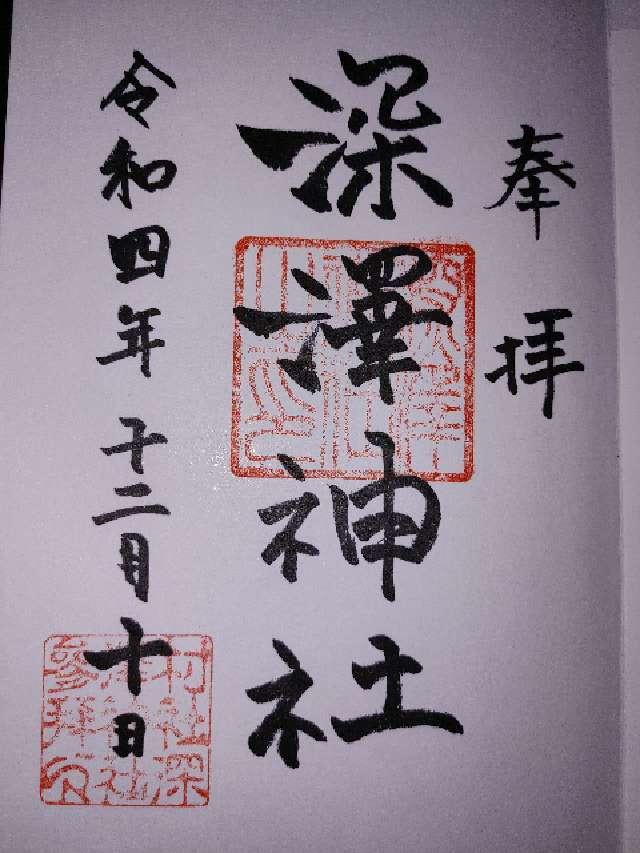 奉拝
深澤神社
令和四年十二月十日